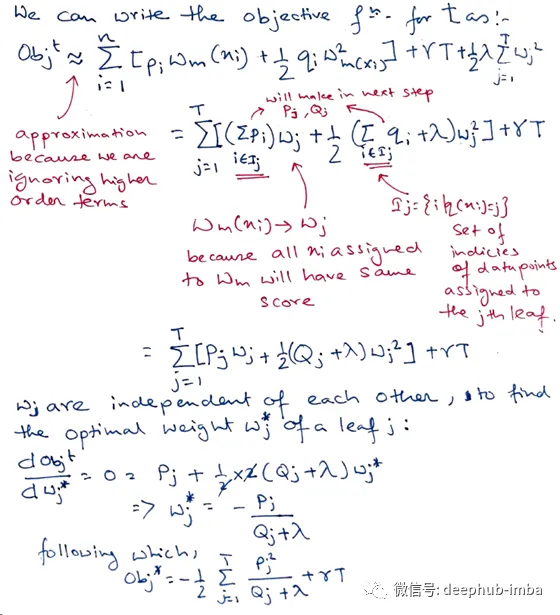 We can write the objective fⁿ. for t as:-
Obj^t ≈ Σ_{i=1}^{n} [p_i w_m(x_i) + 1/2 q_i w²_{m(x_i)}] + γT + 1/2 λ Σ_{j=1}^{T} w_j²
will make in next step
P_j, Q_j
approximation
because we are
ignoring higher
order terms
= Σ_{j=1}^{T} [(Σ_{i∈I_j} p_i) w_j + 1/2 (Σ_{i∈I_j} q_i + λ) w_j²] + γT
w_m(x_i) → w_j
because all x_i assigned
to w_m will have same
score
I_j = {i|q(x_i)=j}
set of
indicies
of datapoints
assigned to
the jth leaf.
= Σ_{j=1}^{T} [P_j w_j + 1/2 (Q_j + λ) w_j²] + γT
w_j are independent of each other, so to find
the optimal weight w_j* of a leaf j:
dObj^t/dw_j* = 0 = P_j + 1/2 × 2 (Q_j + λ) w_j*
=> w_j* = - P_j/(Q_j + λ)
following which,
Obj* = - 1/2 Σ_{j=1}^{T} P_j²/(Q_j + λ) + γT
微信号: deephub-imba